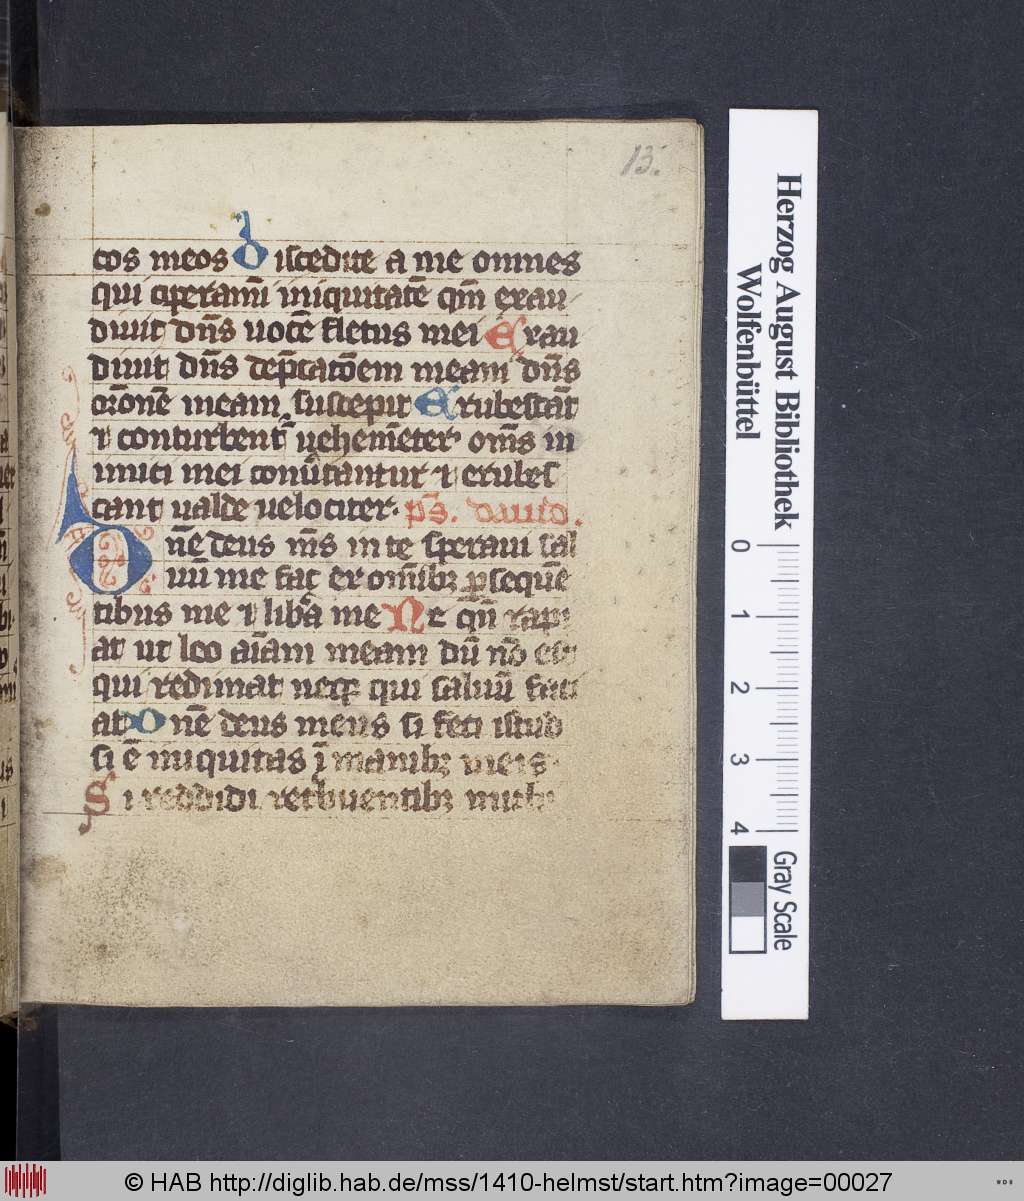 13.
cos meos Discedite a me omnes
qui operamī iniquitatē qm̄ exau
diuit dn̄s uocē fletus mei Exau
diuit dn̄s dep̄catōem meam dn̄s
orōnē meam suscepit Erubescāt
⁊ conturbent᷑ uehemēter om̄s in
imici mei conūtantur ⁊ erubes
cant ualde uelociter. ps̄. dauid.
Dn̄e deus m̄s in te speraui sal
uū me fac ex om̄ibꝫ ꝑsequē
tibus me ⁊ liba me Ne qn̄ rapi
at ut leo aīam meam dū nō est
qui redimat neqꝫ qui saluū faci
at Dn̄e deus meus si feci istud
si ē iniquitas ī manibꝫ meis
Si reddidi retbuentibꝫ michi
Herzog August Bibliothek
Wolfenbüttel
0 1 2 3 4
Gray Scale
© HAB http://diglib.hab.de/mss/1410-helmst/start.htm?image=00027